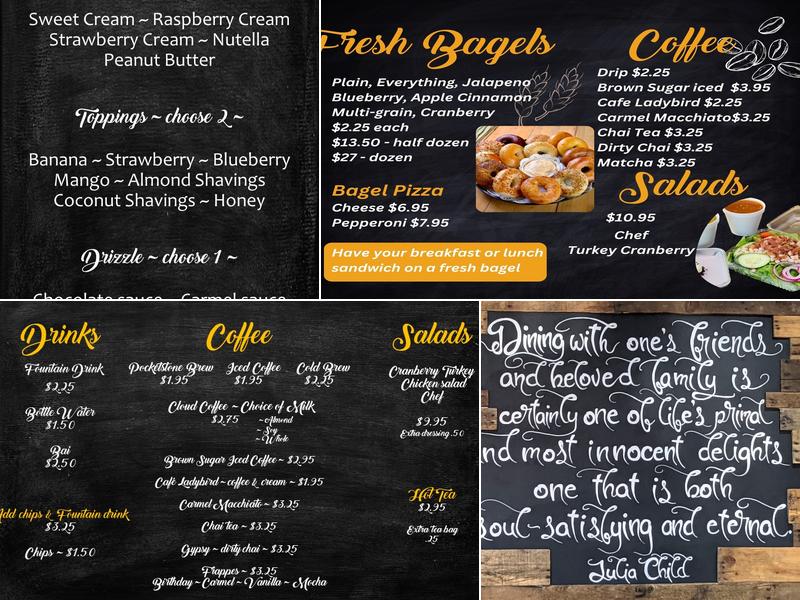 Sweet Cream ~ Raspberry Cream
Strawberry Cream ~ Nutella
Peanut Butter
Toppings ~ choose 2 ~
Banana ~ Strawberry ~ Blueberry
Mango ~ Almond Shavings
Coconut Shavings ~ Honey
Drizzle ~ choose 1 ~
Chocolate sauce ~ Carmel sauce
Fresh Bagels
Plain, Everything, Jalapeno
Blueberry, Apple Cinnamon
Multi-grain, Cranberry
$2.25 each
$13.50 - half dozen
$27 - dozen
Bagel Pizza
Cheese $6.95
Pepperoni $7.95
Have your breakfast or lunch
sandwich on a fresh bagel
Coffee
Drip $2.25
Brown Sugar iced $3.95
Cafe Ladybird $2.25
Carmel Macchiato$3.25
Chai Tea $3.25
Dirty Chai $3.25
Matcha $3.25
Salads
$10.95
Chef
Turkey Cranberry
Drinks
Fountain Drink
$2.25
Bottle Water
$1.50
Bai
$2.50
Add chips & Fountain drink
$3.25
Chips ~ $1.50
Coffee
Pocketstone Brew Iced Coffee Cold Brew
$1.95 $1.95 $2.25
Cloud Coffee ~ Choice of Milk
$2.75 ~Almond
~ Soy
~ Whole
Brown Sugar Iced Coffee ~ $2.95
Café Ladybird ~ coffee & cream ~ $1.95
Carmel Macchiato ~ $3.25
Chai tea ~ $3.25
Gypsy ~ dirty chai ~ $3.25
Frappes ~ $3.25
Birthday ~ Carmel ~ Vanilla ~ Mocha
Salads
Cranberry Turkey
Chicken salad
Chef
$9.95
Extra dressing .50
Hot Tea
$2.95
Extra tea bag
.25
Dining with one's friends
and beloved family is
certainly one of life's primal
and most innocent delights
one that is both
soul-satisfying and eternal.
Julia Child